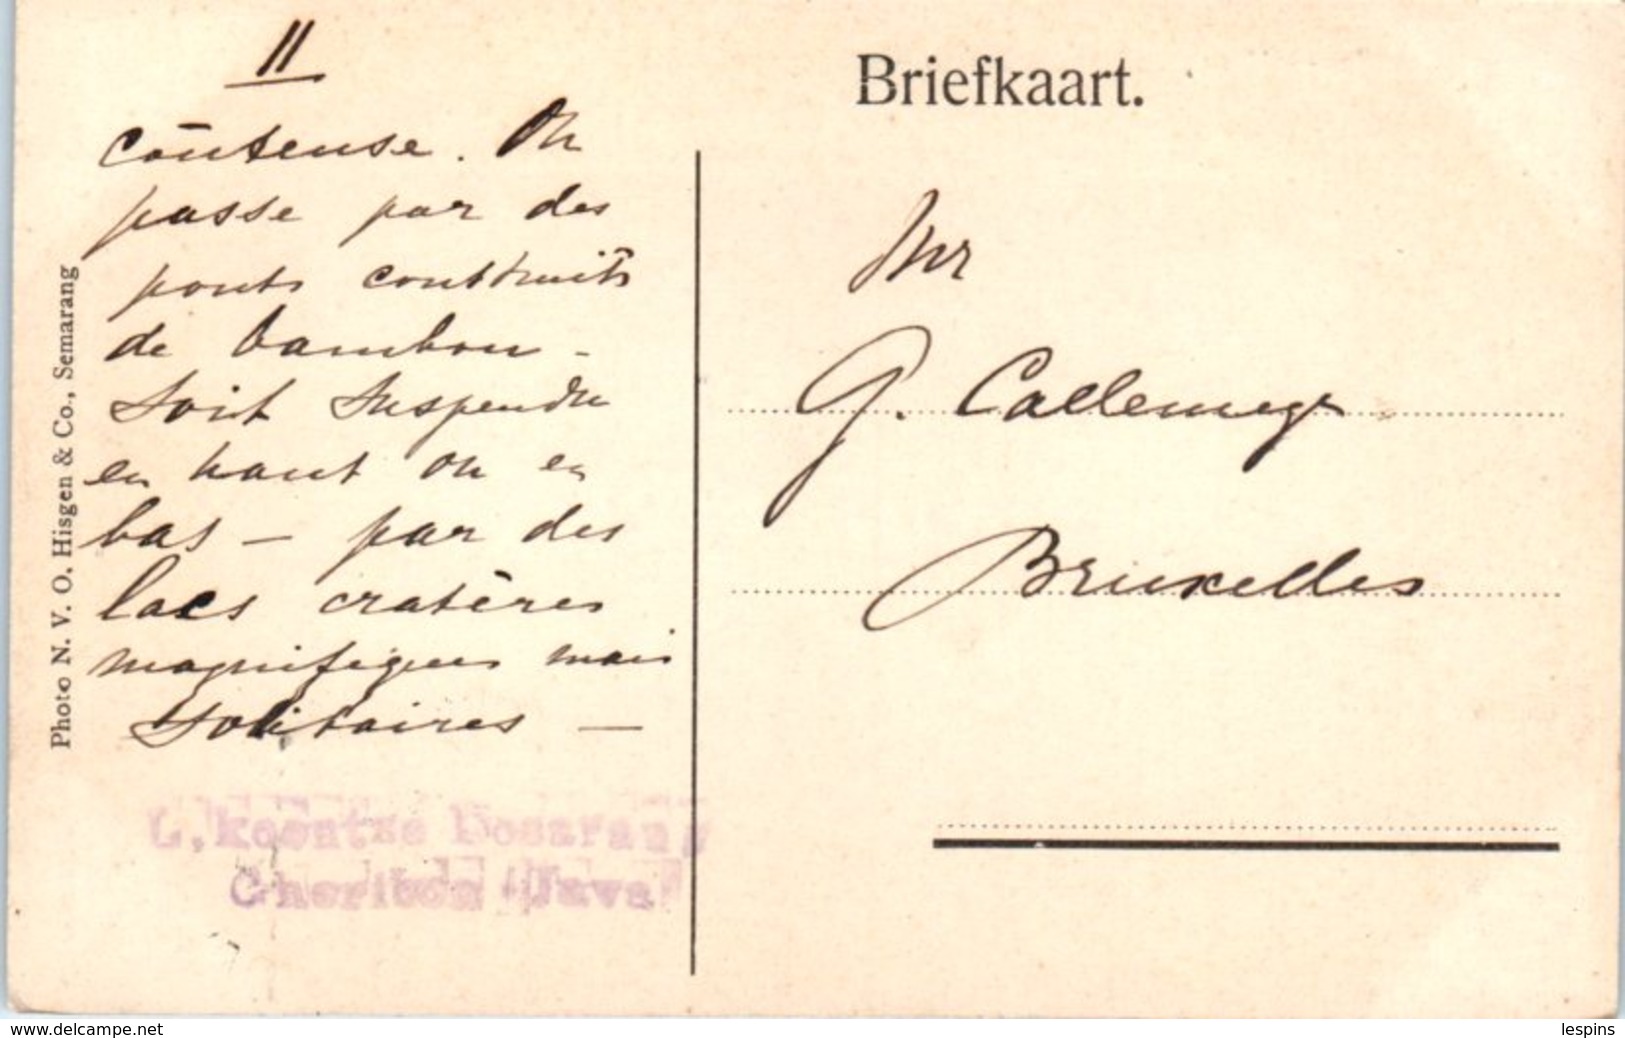 II
coûteuse. On
passe par des
ponts construits
de bambou -
soit suspendu
en haut ou en
bas — par des
lacs cratères
magnifiques mais
solitaires —
Photo N. V. O. Hisgen & Co., Semarang
Briefkaart.
Mr
G. Callemeyn
Bruxelles
Cheribon Java
www.delcampe.net
lespins